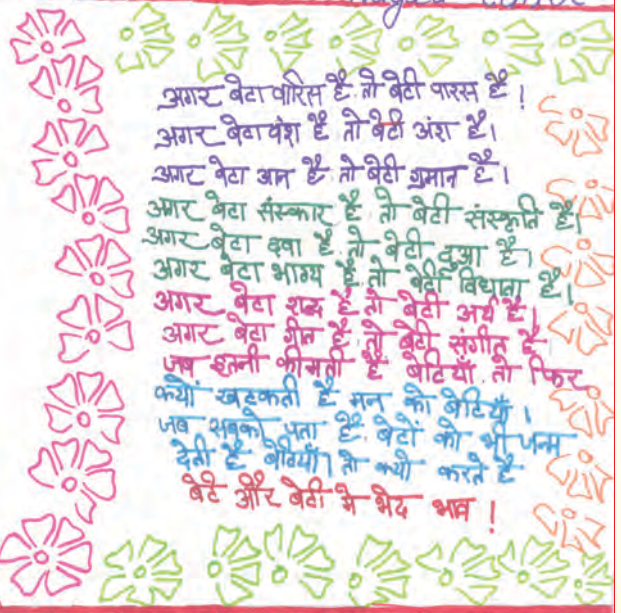 अगर बेटा वारिस है तो बेटी पारस है !
अगर बेटा वंश है तो बेटी अंश है।
अगर बेटा आन है तो बेटी गुमान है।
अगर बेटा संस्कार है तो बेटी संस्कृति है।
अगर बेटा दवा है तो बेटी दुआ है।
अगर बेटा भाग्य है तो बेटी विधाता है।
अगर बेटा शब्द है तो बेटी अर्थ है।
अगर बेटा गीत है तो बेटी संगीत है
जब इतनी कीमती है बेटियाँ तो फिर
क्यों खटकती है मन को बेटियाँ ।
जब सबको पता है बेटों को भी जन्म
देती है बेटियाँ। तो क्यो करते है
बेटे और बेटी मे भेद भाव !